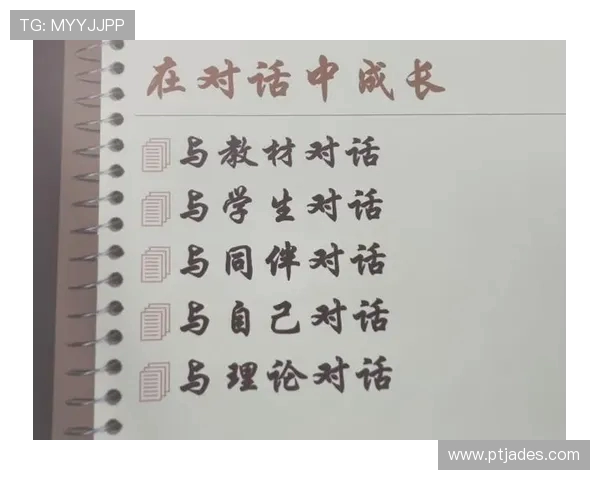 TG: MYYJJPP
在对话中成长
与教材对话
与学生对话
与同伴对话
与自己对话
与理论对话
www.ptjades.com